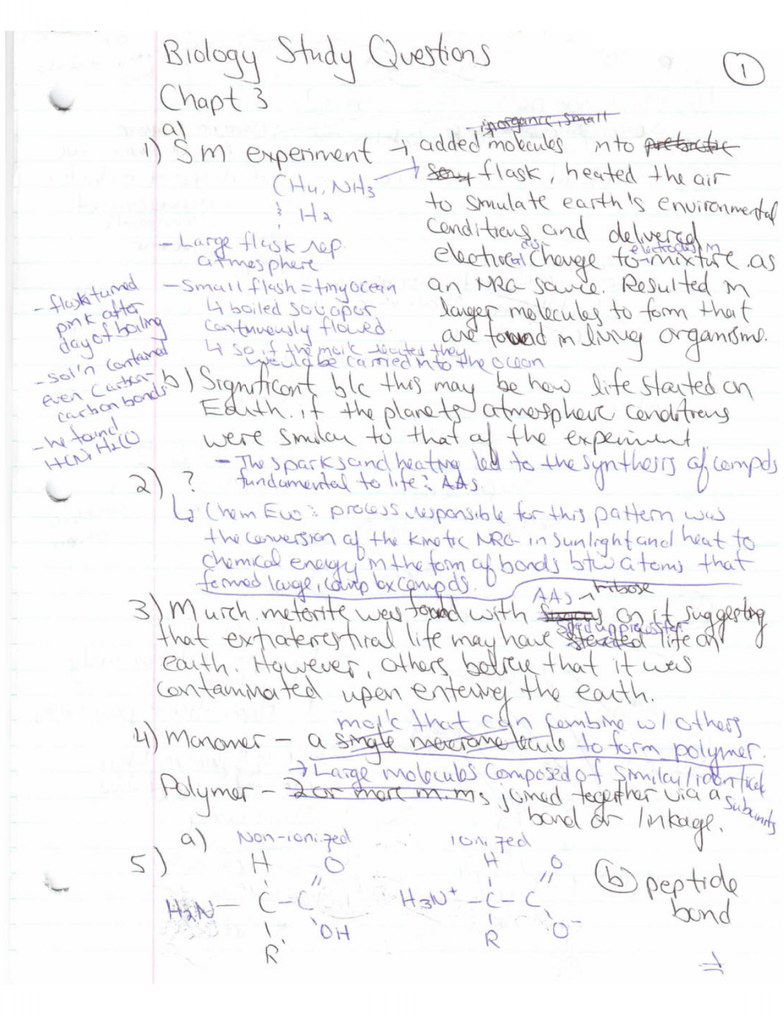 Biology Study Questions
1
Chapt 3
a)
inorganic, small
1) SM experiment → added molecules into
CH4, NH3
& H2
flask, heated the air
to simulate earth's environmental
conditions and delivered
electrical charge to mixture as
electrodes in
an NRG source. Resulted in
larger molecules to form that
are found in living organisms.
- Large flask rep.
atmosphere
- Small flask = tiny ocean
↳ boiled so vapor
continuously flowed.
↳ so if the molc reacted they
would be carried into the ocean
- flask turned
pink after
day of boiling
- sol'n contained
even carbon-
carbon bonds
- he found
HCN, H2CO
b) Significant b/c this may be how life started on
Earth. if the planets atmospheric conditions
were similar to that of the experiment.
- The sparks and heating led to the synthesis of compds
fundamental to life: AAs
2) ?
↳ Chem Evo: process responsible for this pattern was
the conversion of the kinetic NRG in sunlight and heat to
chemical energy in the form of bonds btw atoms that
formed large, complex compds.
AAs ribose
3) Murch. meteorite was found with on it suggesting
that extraterestrial life may have life on
earth. However, others believe that it was
contaminated upon entering the earth.
molc that can combine w/ others
4) Monomer - a single macromolecule to form polymer.
→ Large molecules composed of similar/identical
subunits
Polymer - 2 or more m.m.s joined together via a
bond or linkage.
a) Non-ionized ionized
5)
H O H O
H2N - C - C H3N+ - C - C
OH O-
R R
(b) peptide
bond